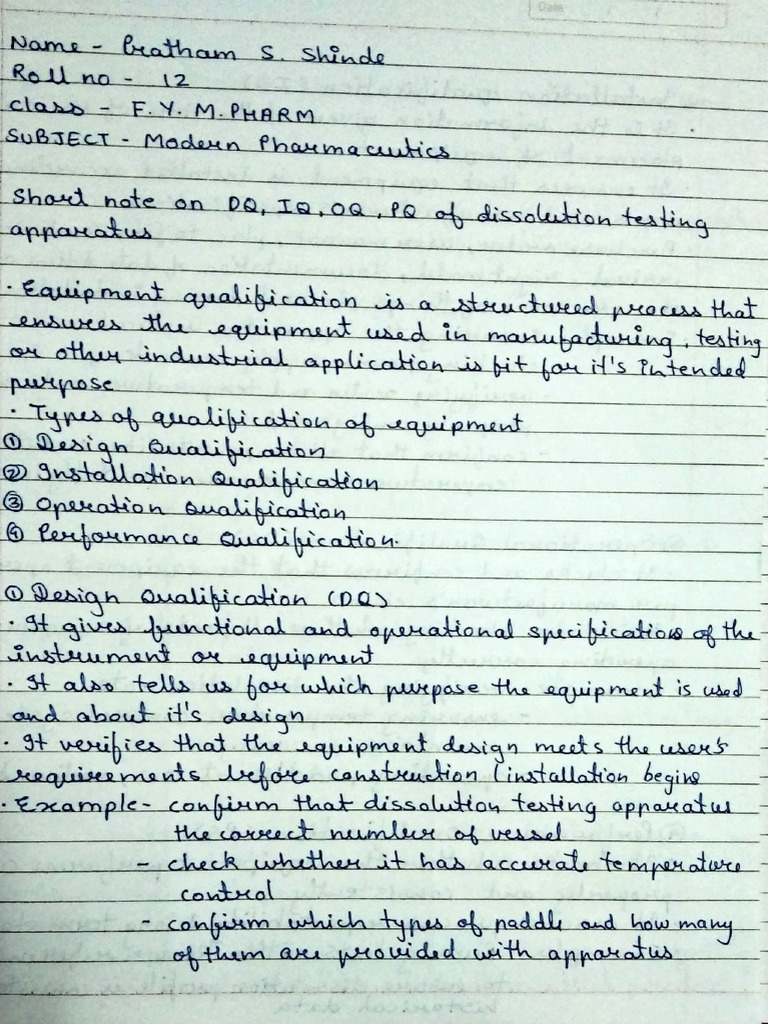 Date
Name - Pratham S. Shinde
Roll no - 12
class - F.Y.M.PHARM
SUBJECT - Modern Pharmaceutics
Short note on DQ, IQ, OQ, PQ of dissolution testing
apparatus
· Equipment qualification is a structured process that
ensures the equipment used in manufacturing, testing
or other industrial application is fit for it's intended
purpose
· Types of qualification of equipment
① Design Qualification
② Installation Qualification
③ Operation Qualification
④ Performance Qualification.
① Design Qualification (DQ)
· It gives functional and operational specifications of the
instrument or equipment
· It also tells us for which purpose the equipment is used
and about it's design
· It verifies that the equipment design meets the user's
requirements before construction / installation begins
· Example - confirm that dissolution testing apparatus
the correct number of vessel
- check whether it has accurate temperature
control
- confirm which types of paddle and how many
of them are provided with apparatus